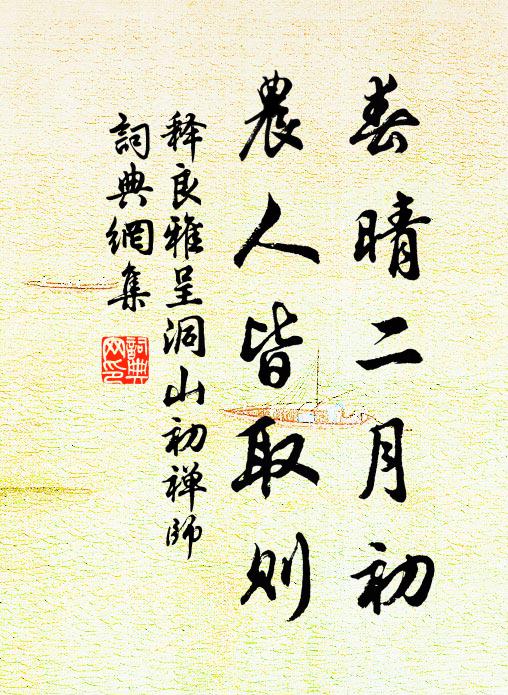 春晴二月初
農人皆取则
释良雅呈洞山初禅师
詞典網集
詞典网印